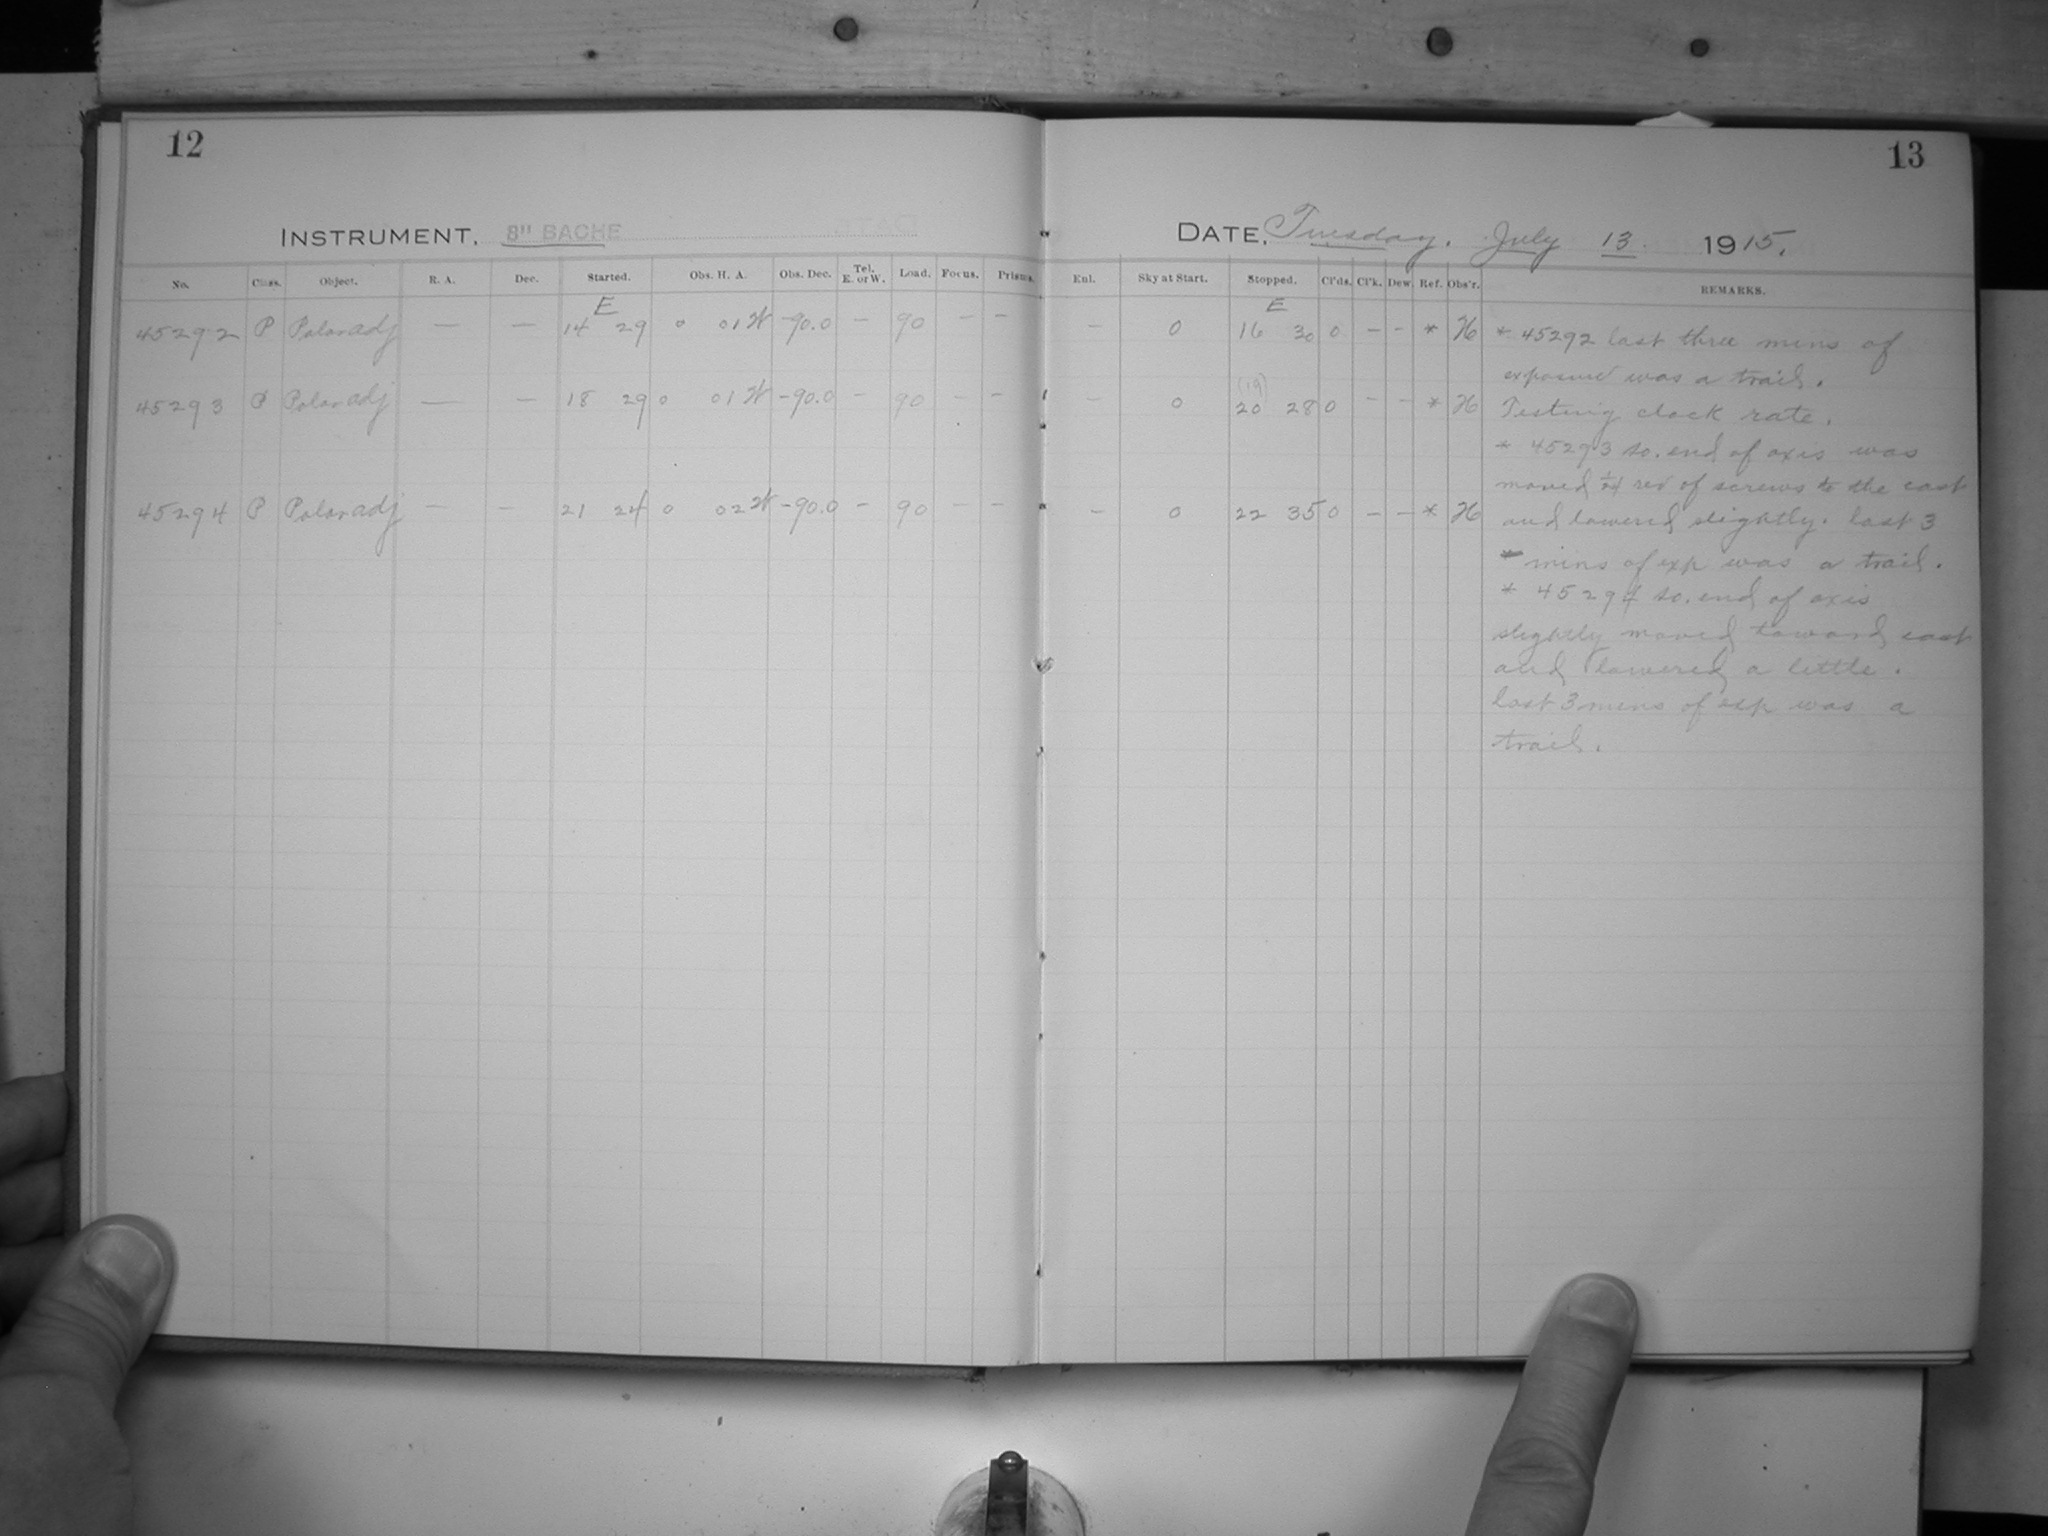 12
13
INSTRUMENT, 8" BACHE
DATE, Tuesday. July 13. 1915.
No. Class. Object. R. A. Dec. Started. Obs. H. A. Obs. Dec. Tel. E. or W. Load. Focus. Prisms. Enl. Sky at Start. Stopped. Cl'ds. Cl'k. Dew Ref. Obs'r. REMARKS.
E E
45292 P Polar adj — — 14 29 0 01 W -90.0 — 90 — — — 0 16 30 0 — — * H
(19)
45293 P Polar adj — — 18 29 0 01 W -90.0 — 90 — — — 0 20 28 0 — — * H
45294 P Polar adj — — 21 24 0 02 W -90.0 — 90 — — — 0 22 35 0 — — * H
* 45292 last three mins of
exposure was a trail.
Testing clock rate.
* 45293 so. end of axis was
moved rev of screws to the east
and lowered slightly. last 3
* mins of exp was a trail.
* 45294 so. end of axis
slightly moved toward east
and lowered a little.
last 3 mins of exp was a
trail.